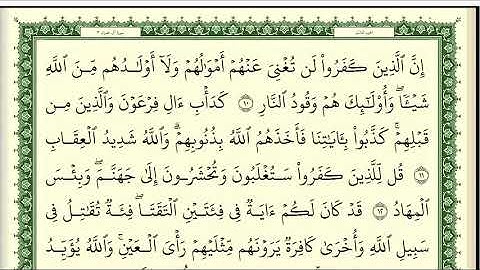 الجزء الثالث
سورة آل عمران ٣
إِنَّ ٱلَّذِينَ كَفَرُواْ لَن تُغْنِىَ عَنْهُمْ أَمْوَٰلُهُمْ وَلَآ أَوْلَٰدُهُم مِّنَ ٱللَّهِ
شَيْـًٔا ۖ وَأُوْلَٰٓئِكَ هُمْ وَقُودُ ٱلنَّارِ ۝١٠ كَدَأْبِ ءَالِ فِرْعَوْنَ وَٱلَّذِينَ مِن
قَبْلِهِمْ ۚ كَذَّبُواْ بِـَٔايَٰتِنَا فَأَخَذَهُمُ ٱللَّهُ بِذُنُوبِهِمْ ۗ وَٱللَّهُ شَدِيدُ ٱلْعِقَابِ
۝١١ قُل لِّلَّذِينَ كَفَرُواْ سَتُغْلَبُونَ وَتُحْشَرُونَ إِلَىٰ جَهَنَّمَ ۚ وَبِئْسَ
ٱلْمِهَادُ ۝١٢ قَدْ كَانَ لَكُمْ ءَايَةٌ فِى فِئَتَيْنِ ٱلْتَقَتَا ۖ فِئَةٌ تُقَٰتِلُ فِى
سَبِيلِ ٱللَّهِ وَأُخْرَىٰ كَافِرَةٌ يَرَوْنَهُم مِّثْلَيْهِمْ رَأْىَ ٱلْعَيْنِ ۚ وَٱللَّهُ يُؤَيِّدُ